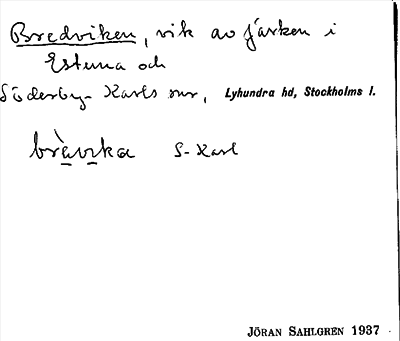 Bredviken, vik av fjärken i
Estuna och
Söderby-Karls snr, Lyhundra hd, Stockholms l.
brὰvika S-Karl
JÖRAN SAHLGREN 1937